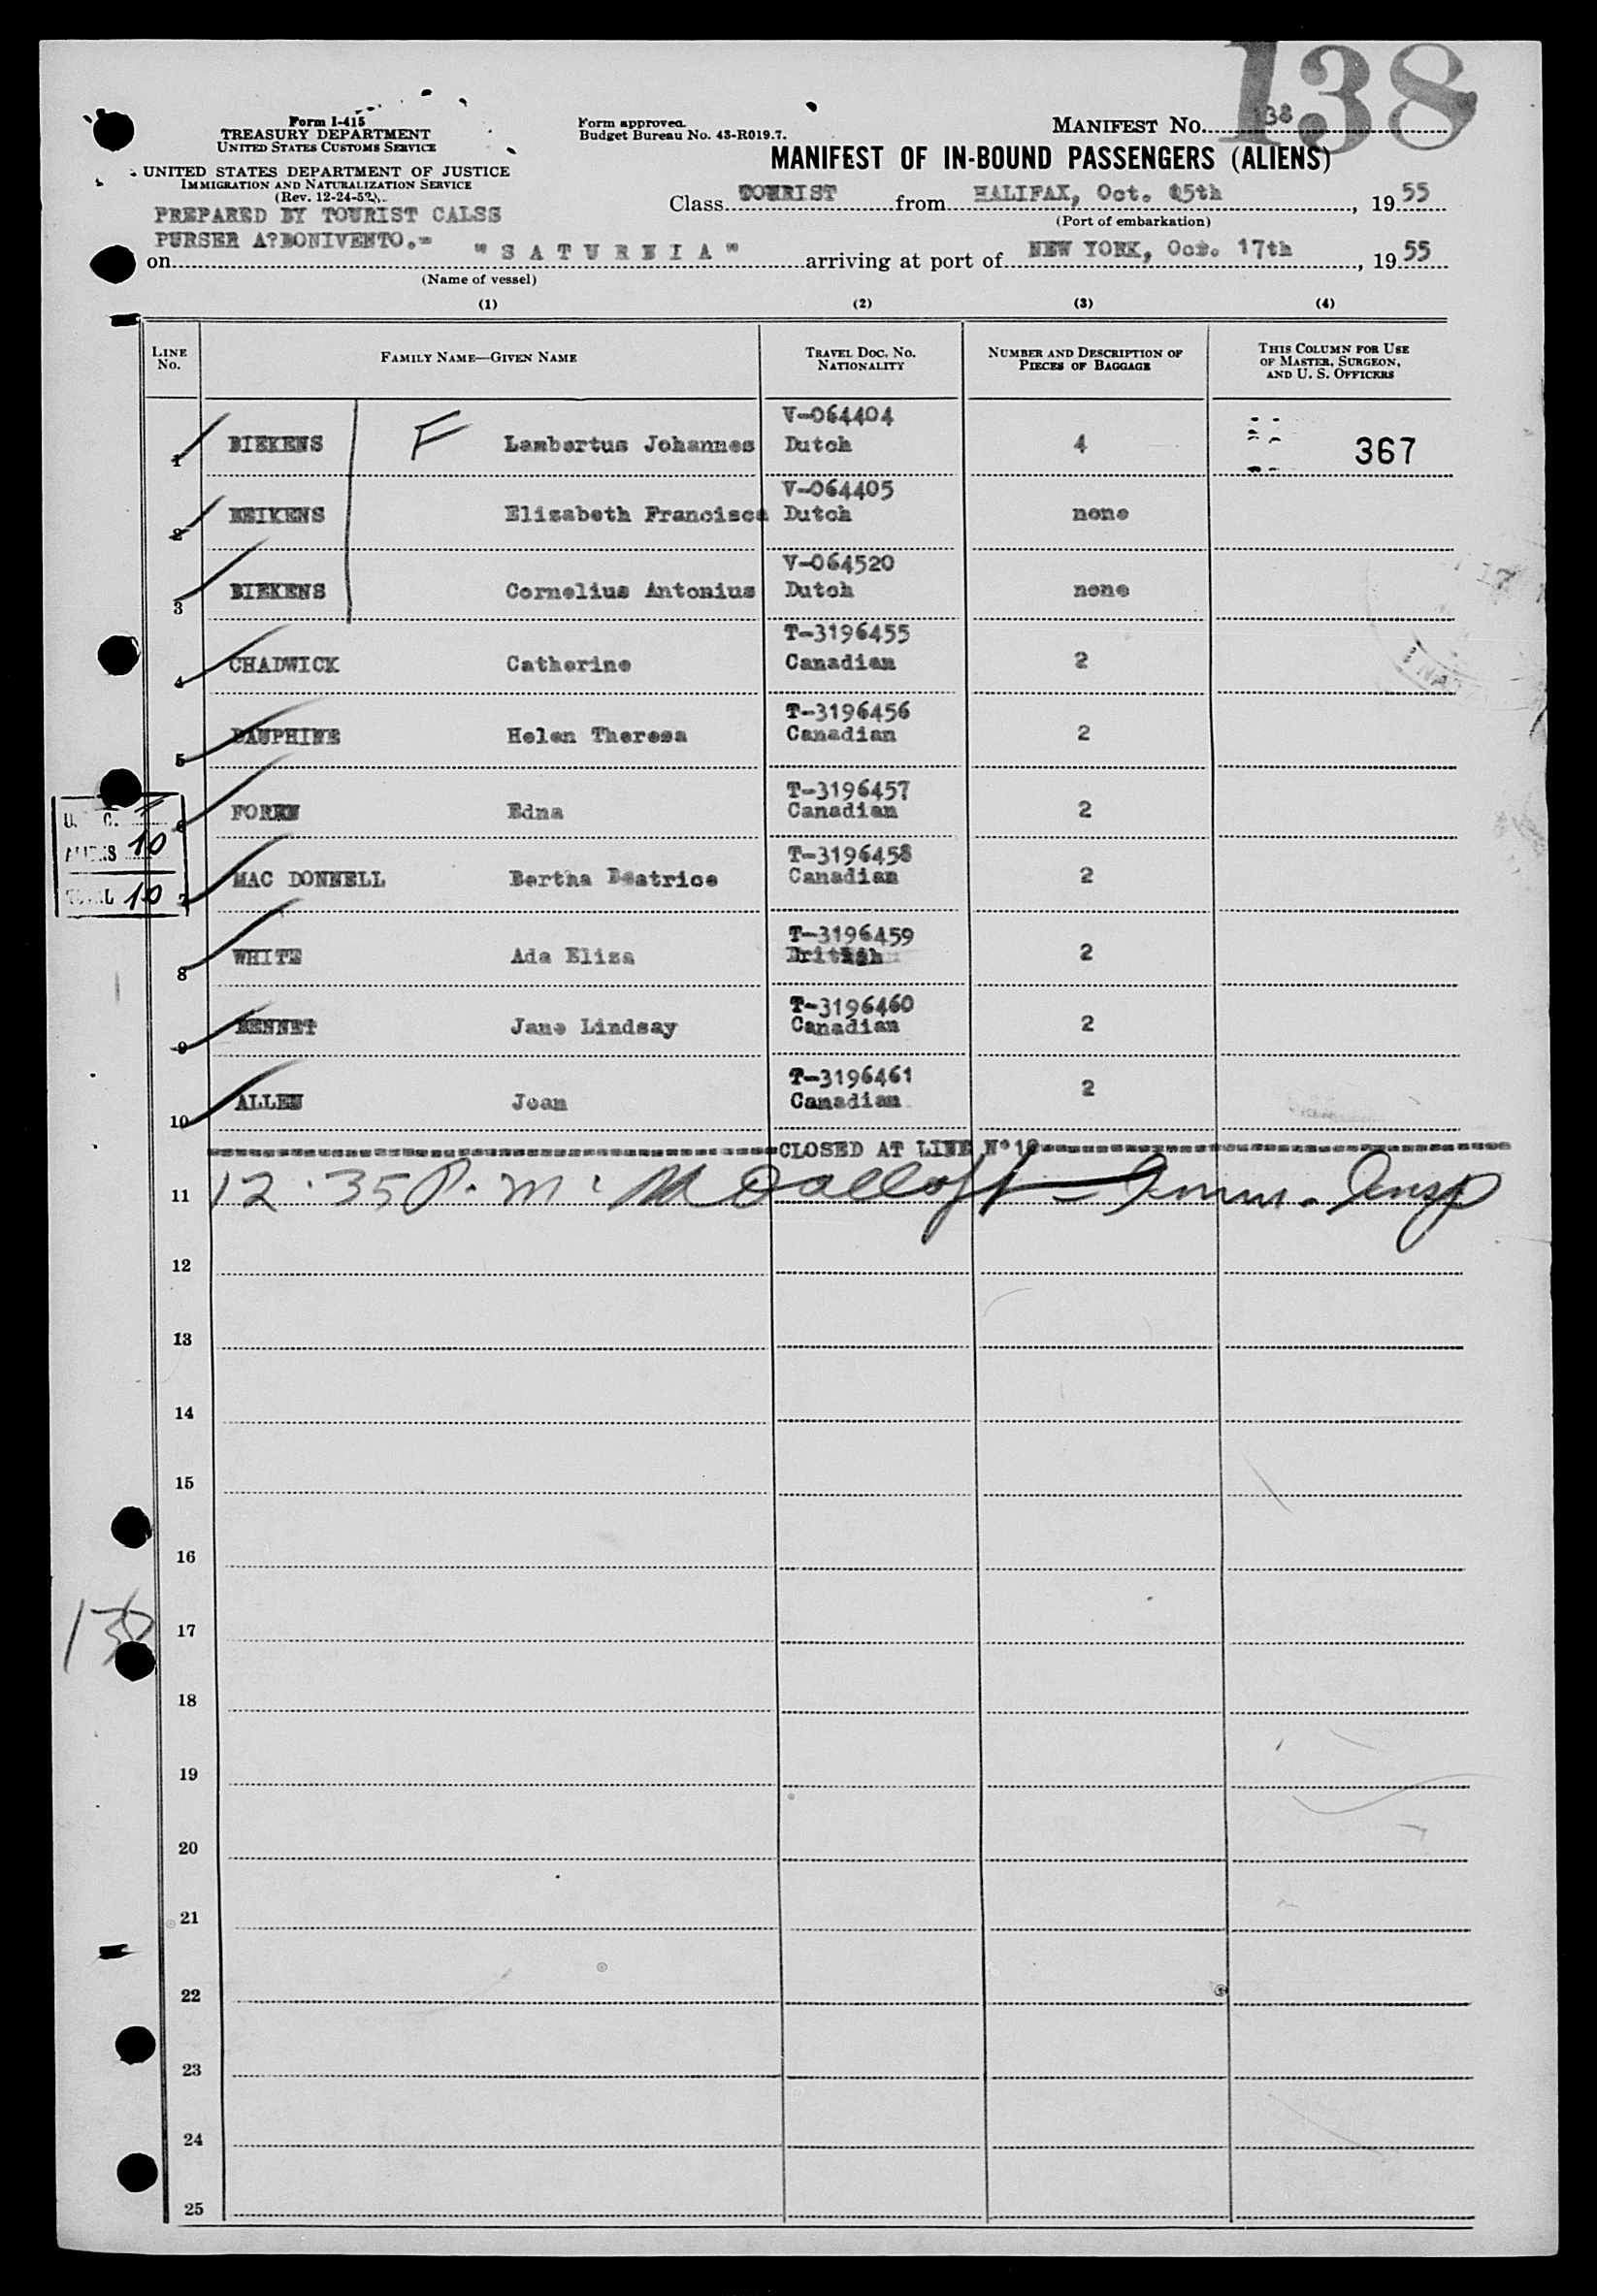 138
Form I-415
TREASURY DEPARTMENT
UNITED STATES CUSTOMS SERVICE
UNITED STATES DEPARTMENT OF JUSTICE
IMMIGRATION AND NATURALIZATION SERVICE
(Rev. 12-24-52)
Form approved.
Budget Bureau No. 43-R019.7.
MANIFEST NO. 138
MANIFEST OF IN-BOUND PASSENGERS (ALIENS)
Class TOURIST from HALIFAX, Oct. 15th, 1955
(Port of embarkation)
PREPARED BY TOURIST CALSS
PURSER A?BONIVENTO.=
on "SATURNIA" arriving at port of NEW YORK, Oct. 17th, 1955
(Name of vessel)
(1) (2) (3) (4)
LINE NO. FAMILY NAME—GIVEN NAME TRAVEL DOC. NO. NATIONALITY NUMBER AND DESCRIPTION OF PIECES OF BAGGAGE THIS COLUMN FOR USE OF MASTER, SURGEON, AND U. S. OFFICERS
V-064404
1 BIEKENS F Lambertus Johannes Dutch 4 367
V-064405
2 BEIKENS Elizabeth Francisca Dutch none
V-064520
3 BIEKENS Cornelius Antonius Dutch none
T-3196455
4 CHADWICK Catherine Canadian 2
T-3196456
5 DAUPHINE Helen Theresa Canadian 2
T-3196457
6 FOREN Edna Canadian 2
T-3196458
7 MAC DONNELL Bertha Beatrice Canadian 2
T-3196459
8 WHITE Ada Eliza British 2
T-3196460
9 BENNET Jane Lindsay Canadian 2
T-3196461
10 ALLEN Joan Canadian 2
U. C.
ALIENS 10
TOTAL 10
CLOSED AT LINE N°10
11 12.35 P.m. Imm. Insp
12
13
14
15
16
138
17
18
19
20
21
22
23
24
25